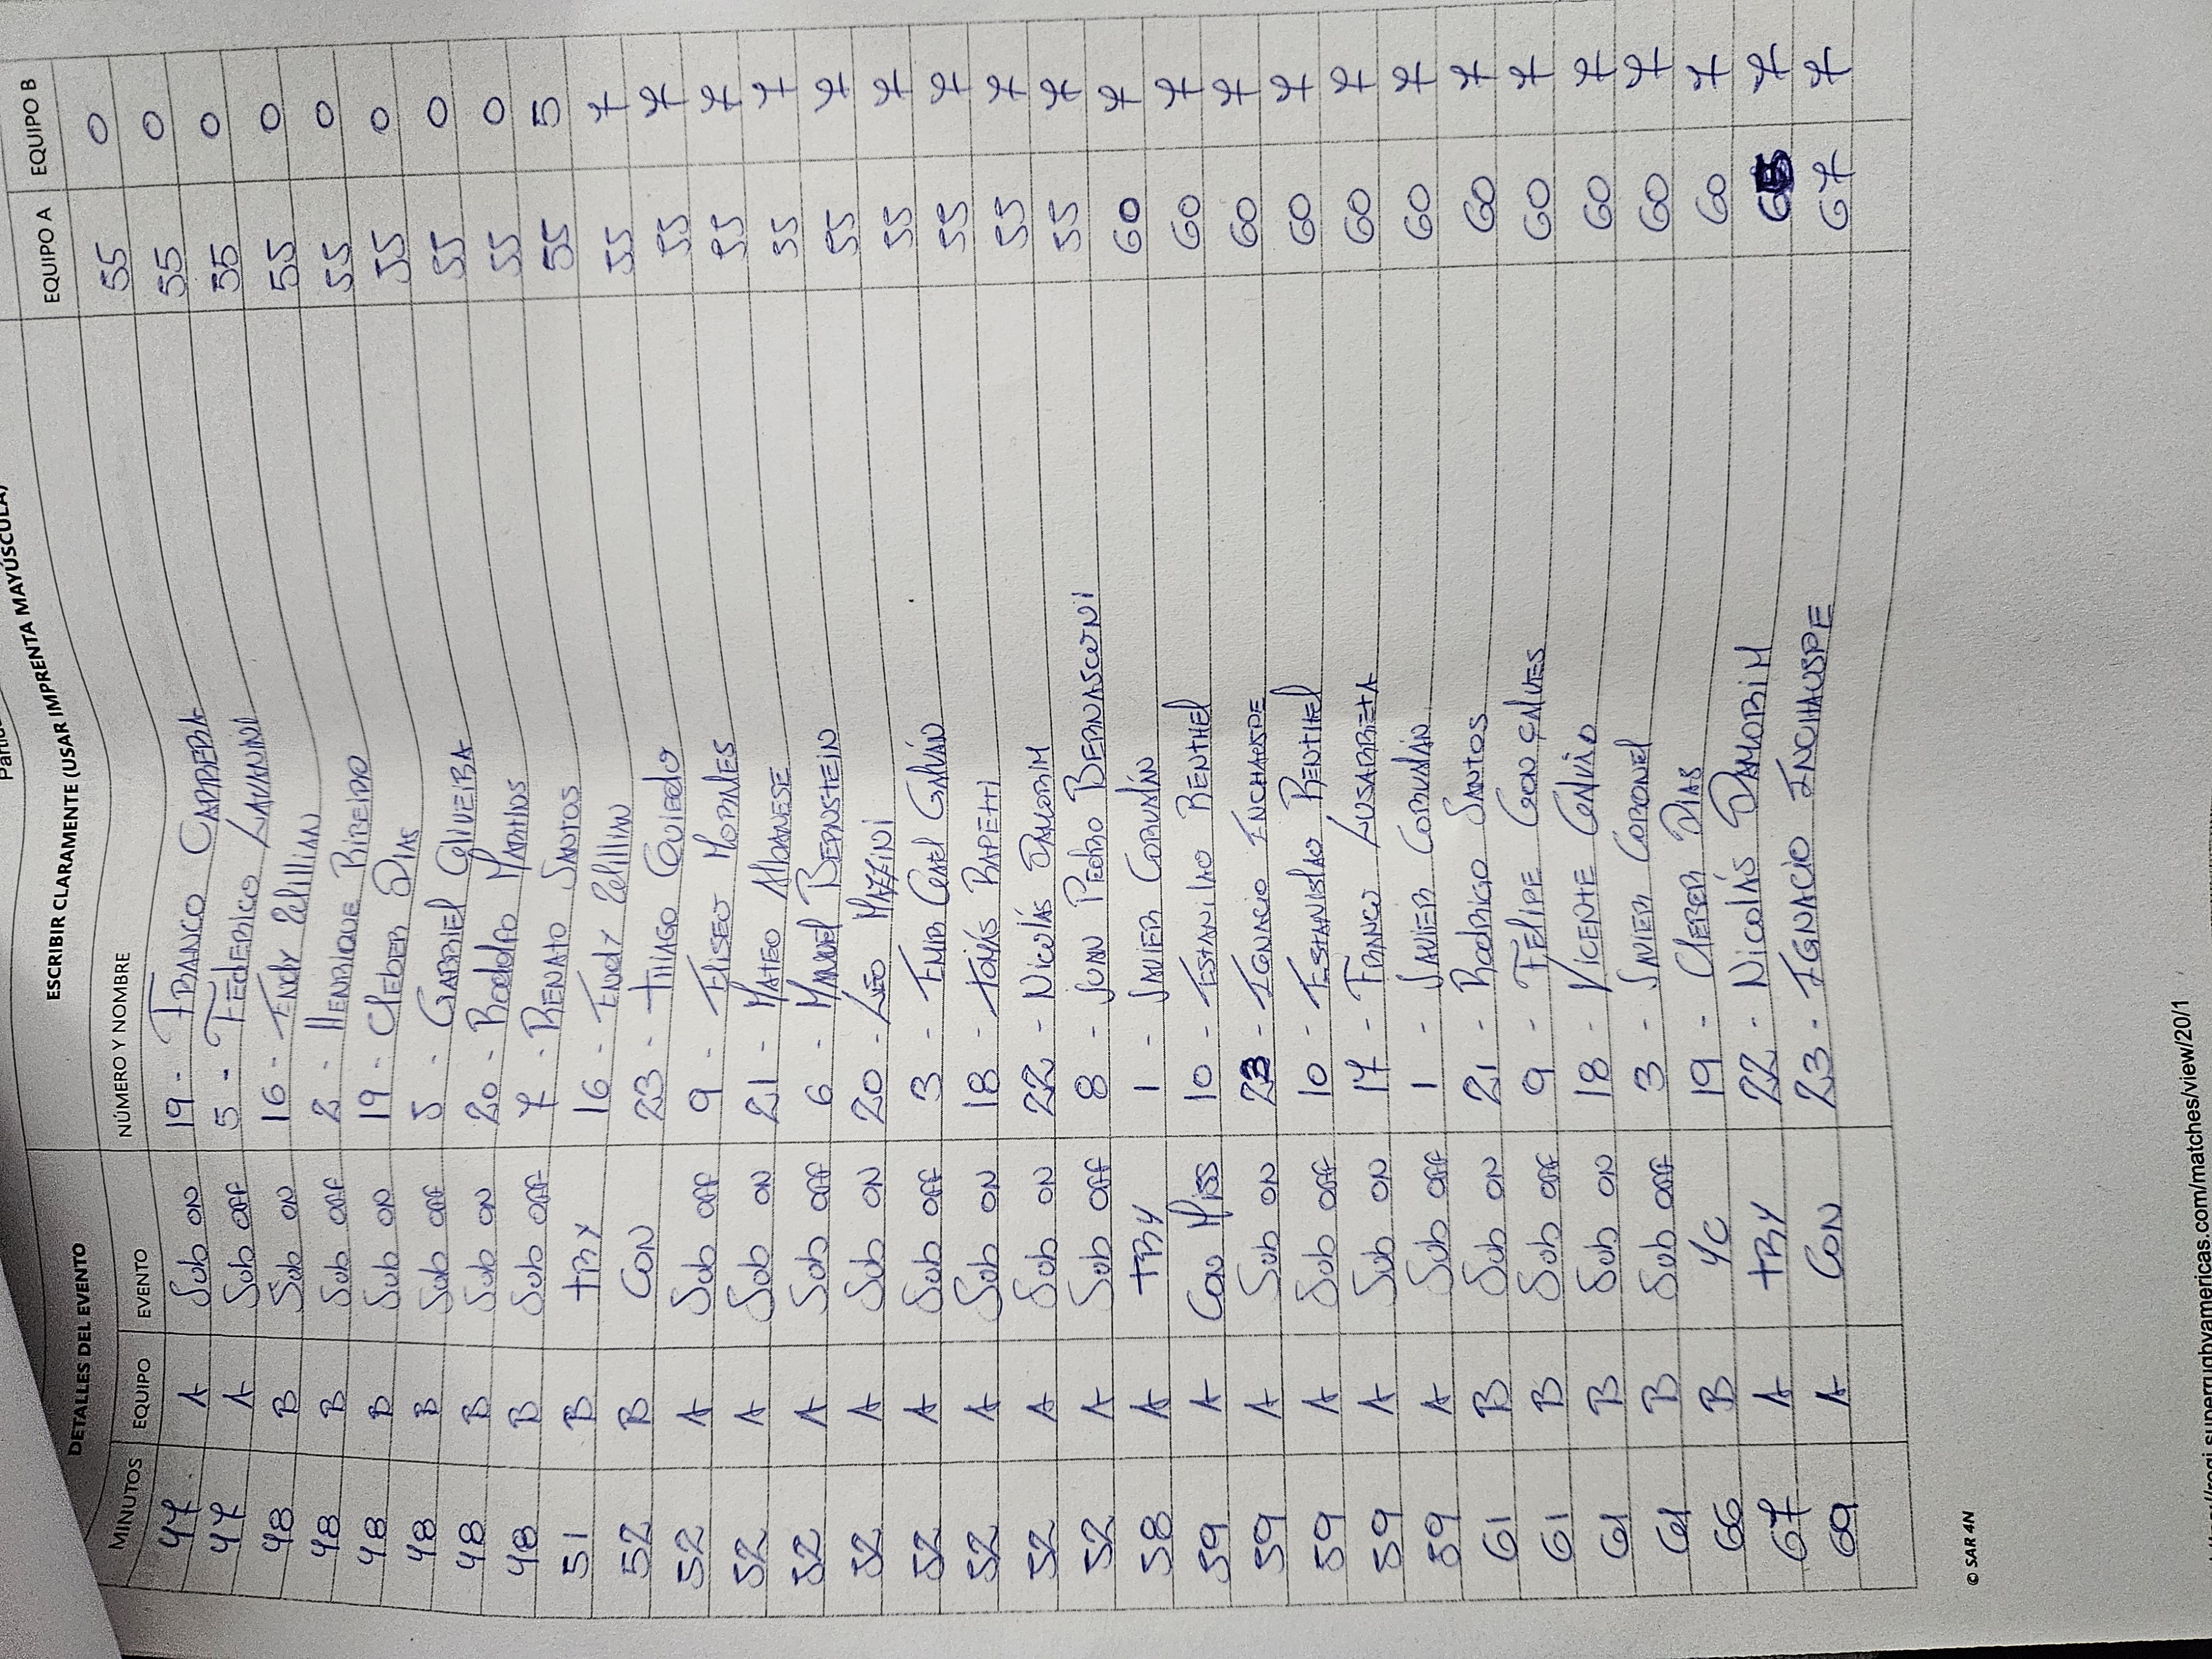 ESCRIBIR CLARAMENTE (USAR IMPRENTA MAYÚSCULA)
DETALLES DEL EVENTO
MINUTOS EQUIPO EVENTO NÚMERO Y NOMBRE EQUIPO A EQUIPO B
55 0
47 A Sub ON 19 - FRANCO CARRERA 55 0
47 A Sub OFF 5 - FEDERICO LAVANINI 55 0
48 B Sub ON 16 - ENDY PILILLIAN 55 0
48 B Sub OFF 2 - HENRIQUE RIBEIRO 55 0
48 B Sub ON 19 - CLEBER DIAS 55 0
48 B Sub OFF 5 - GABRIEL OLIVEIRA 55 0
48 B Sub ON 20 - RODOLFO MARTINS 55 0
48 B Sub OFF 7 - RENATO SANTOS 55 5
51 B TRY 16 - ENDY PILILLIAN 55 7
52 B CON 23 - THIAGO OVIEDO 55 7
52 A Sub OFF 9 - ELISEO MORALES 55 7
52 A Sub ON 21 - MATEO ALBANESE 55 7
52 A Sub OFF 6 - MANUEL BERNSTEIN 55 7
52 A Sub ON 20 - LEO MAZZINI 55 7
52 A Sub OFF 3 - 55 7
52 A Sub ON 18 - TOMÁS RAPETTI 55 7
52 A Sub ON 22 - NICOLÁS DAMORIM 55 7
52 A Sub OFF 8 - JUAN PEDRO BERNASCONI 60 7
58 A TRY 1 - JAVIER CORVALÁN 60 7
59 A CON MISS 10 - ESTANILAO RENTHEL 60 7
59 A Sub ON 23 - IGNACIO INCHAUSPE 60 7
59 A Sub OFF 10 - ESTANISLAO RENTHEL 60 7
59 A Sub ON 17 - FRANCO LUSARRETA 60 7
59 A Sub OFF 1 - JAVIER CORVALÁN 60 7
61 B Sub ON 21 - RODRIGO SANTOS 60 7
61 B Sub OFF 9 - FELIPE GONÇALVES 60 7
61 B Sub ON 18 - VICENTE GALVÃO 60 7
61 B Sub OFF 3 - JAVIER CORONEL 60 7
66 B YC 19 - CLEBER DIAS 60 7
67 A TRY 22 - NICOLÁS DAMORIM 65 7
69 A CON 23 - IGNACIO INCHAUSPE 67 7
© SAR 4N
superrugbyamericas.com/matches/view/20/1